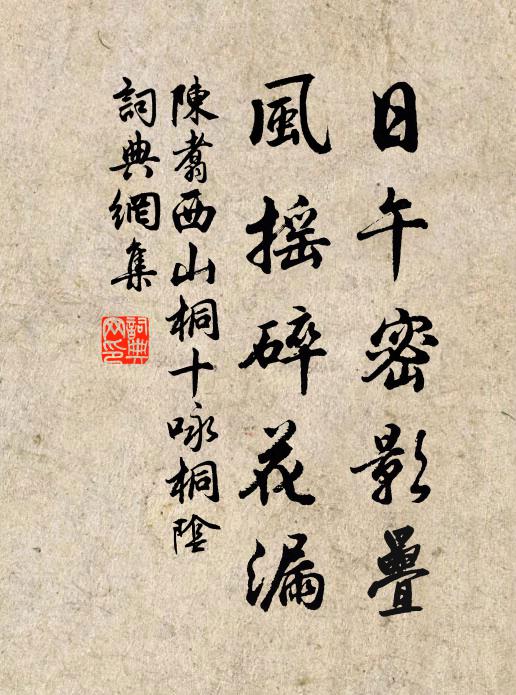 日午密影疊
風搖碎花漏
陳翥西山桐十咏桐陰
詞典網集
詞典
网印